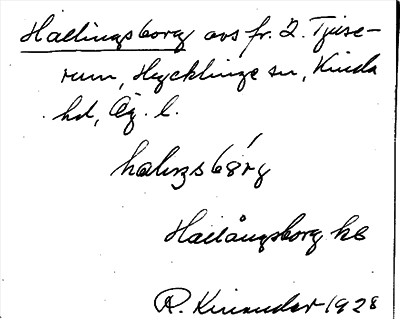 Hallingsborg avs fr. 2. Tjuse-
rum, Hycklinge sn, Kinda
hd, Ög. l.
Hallångsborg hb
R. Kinander 1928